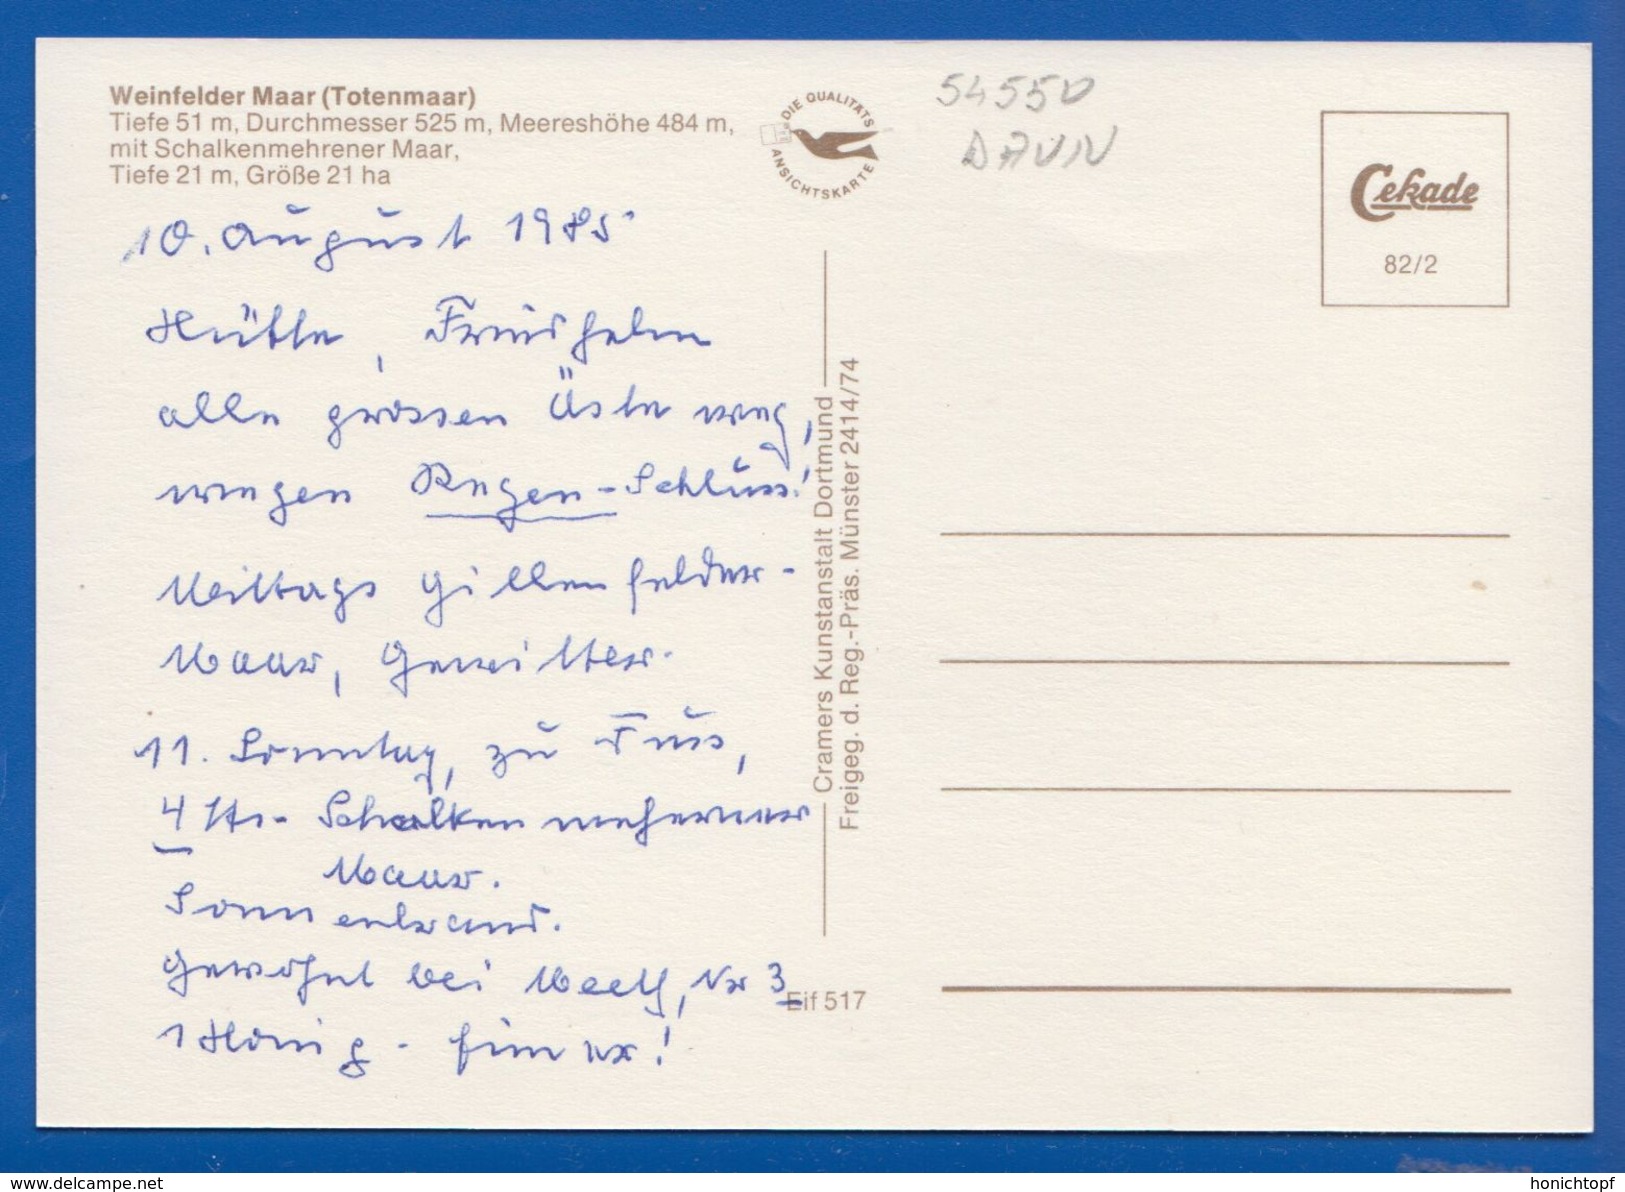 Weinfelder Maar (Totenmaar)
Tiefe 51 m, Durchmesser 525 m, Meereshöhe 484 m,
mit Schalkenmehrener Maar,
Tiefe 21 m, Größe 21 ha
10. August 1985
Hütte, Friedhelm
alle grossen Äste weg,
wegen Regen-Schluss!
Mittags Gillenfelder-
Maar, Gewitter.
11. Sonntag, zu Fuss,
4 Std. Schalkenmehrener
Maar.
Sonnenbrand.
Gewohnt bei Nr 3
1 Honig - Eimer!
DIE QUALITÄTS
ANSICHTSKARTE
Cramers Kunstanstalt Dortmund
Freigeg. d. Reg.-Präs. Münster 2414/74
Eif 517
54550
DAUN
Cekade
82/2
delcampe.net
honichtopf